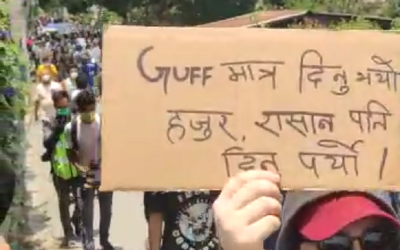 GUFF मात्र दिनु भयो
हजुर, रासान पनि
दिनु पर्यो ।